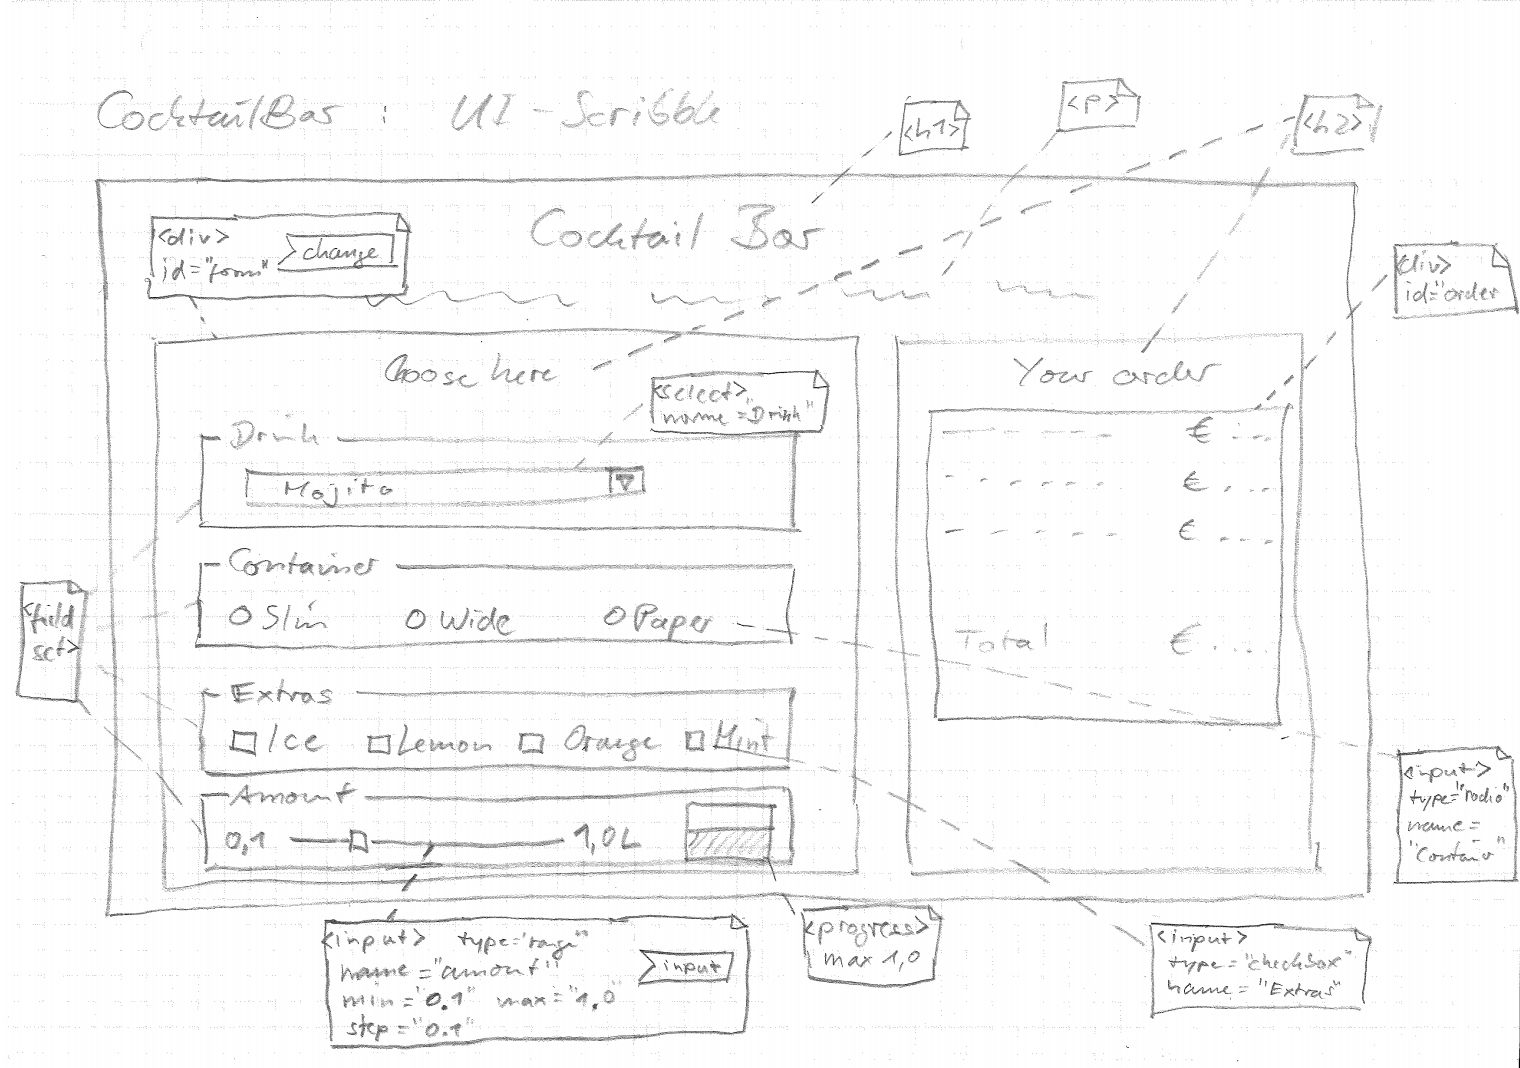 CocktailBar : UI-Scribble
<h1>
<p>
<h2>
Cocktail Bar
<div>
id="form"
change
<div>
id="order
Choose here
<select>
name="Drink"
Your order
Drink
Mojito
€ ...
€ ...
€ ...
Total € ....
Container
O Slim O Wide O Paper
<field
set>
Extras
Ice Lemon Orange Mint
Amount
0,1 1,0L
<input>
type="radio
name=
<input> type="range"
name="amount"
min="0.1" max="1,0"
step="0.1"
input
<progress>
max 1,0
<input>
type="checkbox"
name="Extras"